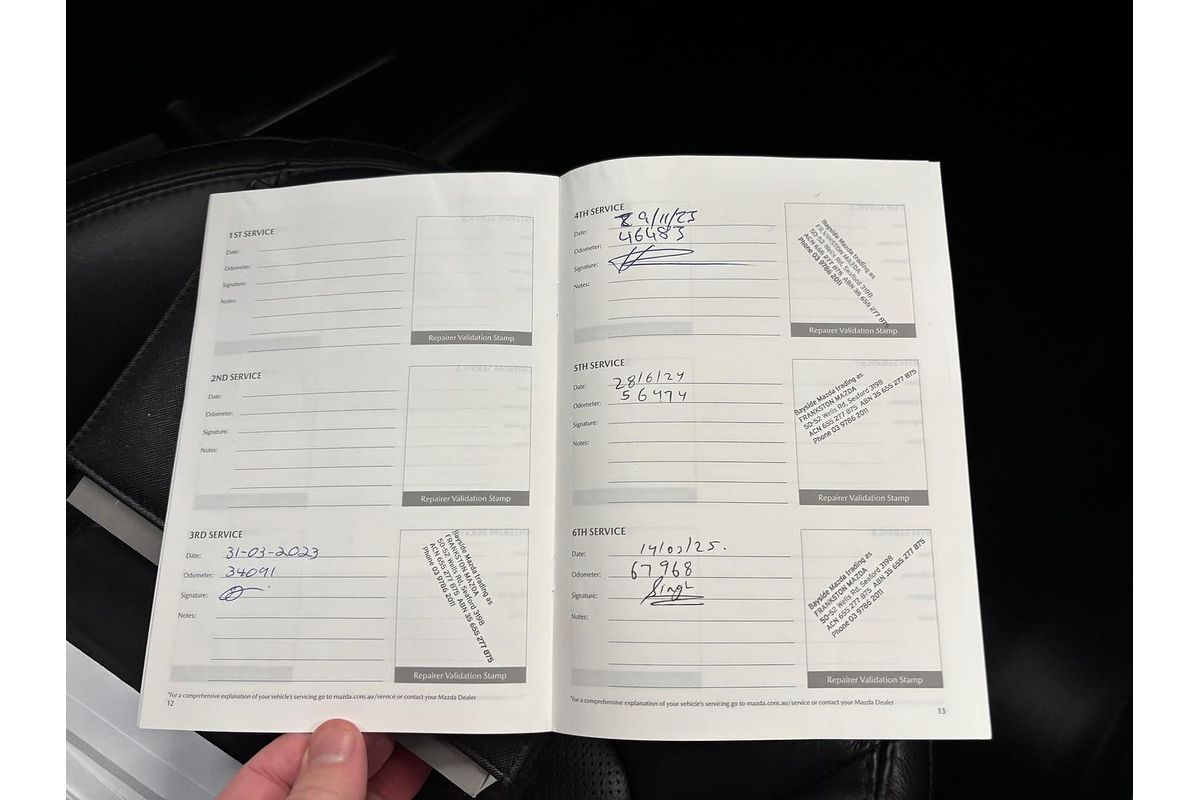 1ST SERVICE
Date:
Odometer:
Signature:
Notes:
Repairer Validation Stamp
2ND SERVICE
Date:
Odometer:
Signature:
Notes:
Repairer Validation Stamp
3RD SERVICE
Date: 31-03-2023
Odometer: 34091
Signature:
Notes:
Bayside Mazda trading as
FRANKSTON MAZDA
50-52 Wells Rd, Seaford 3198
ACN 655 277 875 ABN 35 655 277 875
Phone 03 9786 2011
Repairer Validation Stamp
*For a comprehensive explanation of your vehicle's servicing go to mazda.com.au/service or contact your Mazda Dealer
12
4TH SERVICE
Date: 9/11/23
Odometer: 46483
Signature:
Notes:
Bayside Mazda trading as
FRANKSTON MAZDA
50-52 Wells Rd, Seaford 3198
ACN 655 277 875 ABN 35 655 277 875
Phone 03 9786 2011
Repairer Validation Stamp
5TH SERVICE
Date: 28/6/24
Odometer: 56474
Signature:
Notes:
Bayside Mazda trading as
FRANKSTON MAZDA
50-52 Wells Rd, Seaford 3198
ACN 655 277 875 ABN 35 655 277 875
Phone 03 9786 2011
Repairer Validation Stamp
6TH SERVICE
Date: 14/03/25.
Odometer: 67968
Signature: Singh
Notes:
Bayside Mazda trading as
FRANKSTON MAZDA
50-52 Wells Rd, Seaford 3198
ACN 655 277 875 ABN 35 655 277 875
Phone 03 9786 2011
Repairer Validation Stamp
*For a comprehensive explanation of your vehicle's servicing go to mazda.com.au/service or contact your Mazda Dealer
13